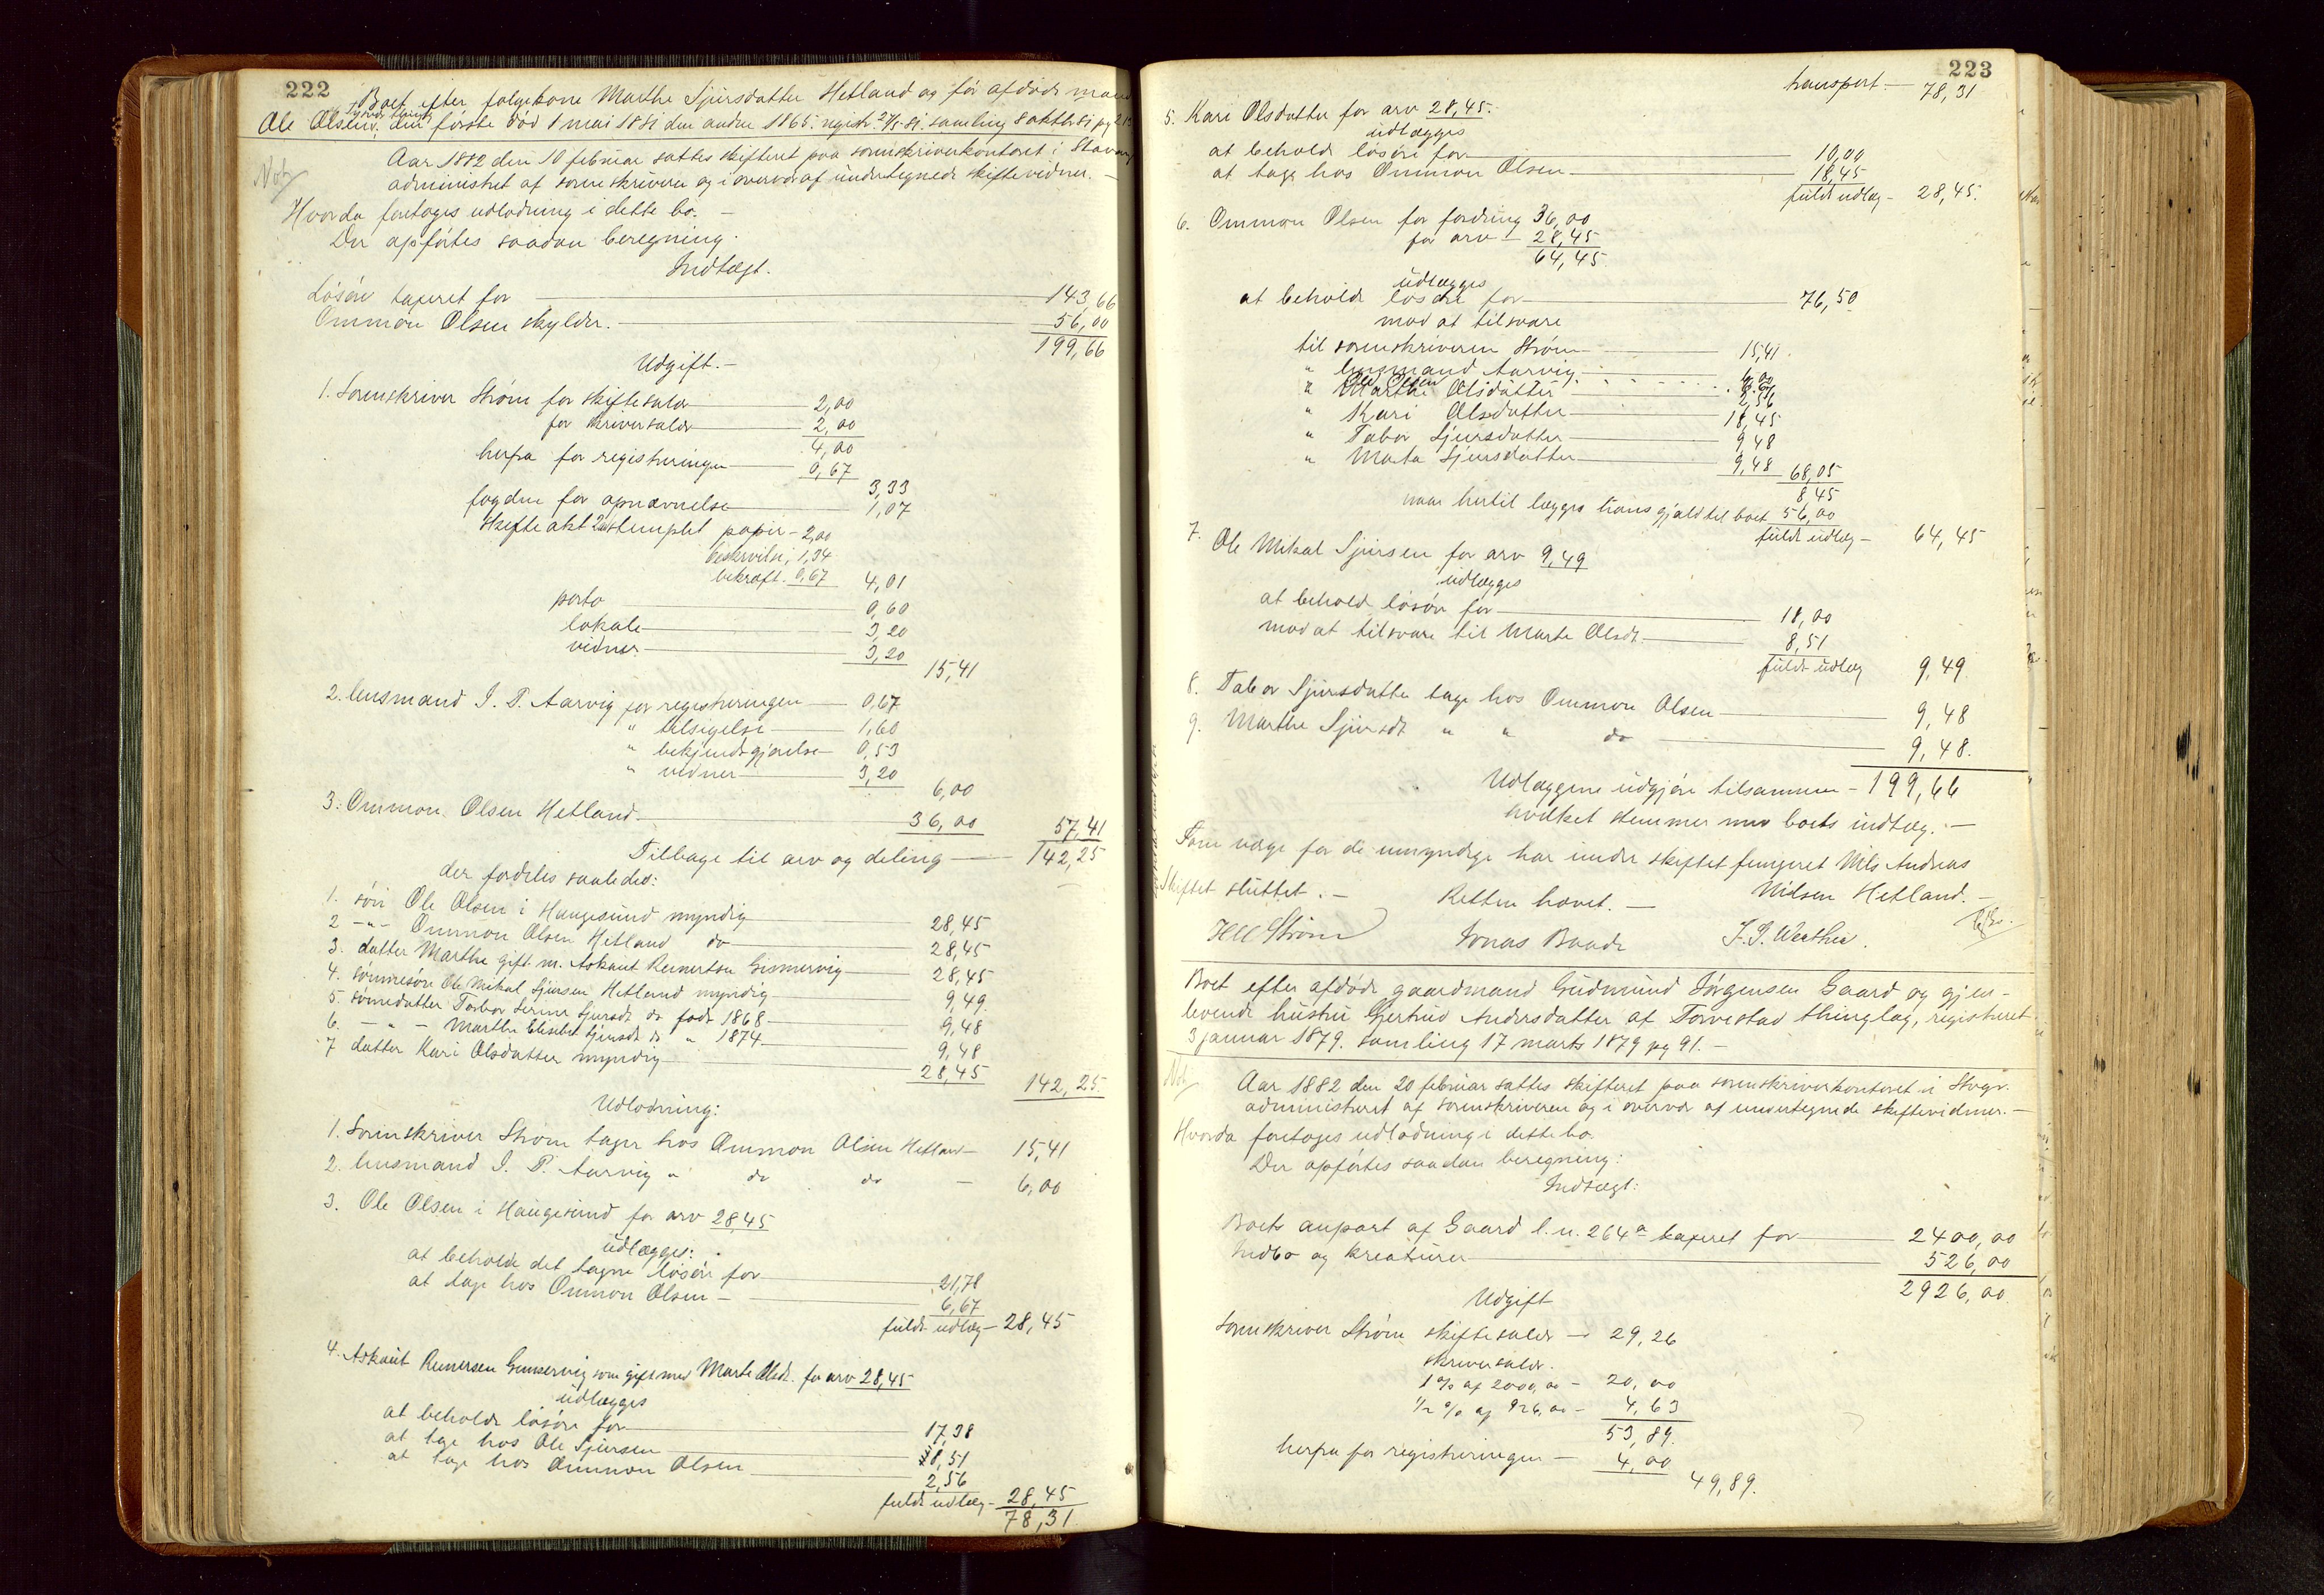 222
Boet efter folgekone Marthe Sjursdatter Hetland og før afdøde mand
Ole Olsen, den første død 1 mai 1881 den anden 1865. registr. 27/5 81. samling 8 oktbr 81 pg 21
Aar 1882 den 10 februar sattes skifteret paa sorenskriverkontoret i Stavang
administret af sorenskriveren og i overvær af undertegnede skiftevidner. —
Not
Hvorda foretoges udlodning i dette bo. —
Der opførtes saadan beregning:
Indtægt.
Løsøre taxeret for — 143,66
Ommon Olsen skylder. — 56,00
199,66
Udgift. —
1. Sorenskriver Strøm for skiftesalær — 2,00
for skriversalær — 2,00
4,00
herfra for registreringen — 0,67
3,33
fogden for opnævnelse — 1,07
Skifteakt stemplet papir — 2,00
beskrivelse, 1,34
bekræft. 0,67 4,01
porto — 0,60
lokale — 3,20
vidner — 3,20 15,41
2. lensmand I. P. Aarvig for registreringen — 0,67
" tilsigelse — 1,60
" bekjendtgjørelse — 0,53
" vidner — 3,20
6,00
3. Ommon Olsen Hetland — 36,00 57,41
Tilbage til arv og deling — 142,25
der fordeles saaledes:
1. søn Ole Olsen i Haugesund myndig — 28,45
2 —"— Ommon Olsen Hetland do — 28,45
3. datter Marthe gift m. Askaut Reinertsen Gismervig — 28,45
4. sønnesøn Ole Mikal Sjursen Hetland myndig — 9,49
5. sønnedatter Tabor Serine Sjursdt do født 1868 — 9,48
6. — " — Marthe Elisabet Sjursdt do " 1874 — 9,48
7 datter Kari Olsdatter myndig — 28,45 142,25
Udlodning:
1. Sorenskriver Strøm tager hos Ommon Olsen Hetland — 15,41
2. lensmand I. P. Aarvig " do do — 6,00
3. Ole Olsen i Haugesund for arv 28,45
udlægges:
at beholde det tagne løsøre for — 21,78
at tage hos Ommon Olsen — 6,67
fuldt udlæg — 28,45
4. Askaut Reinersen Gismervig som gift med Marte Olsdt. for arv 28,45
udlægges
at beholde løsøre for — 17,38
at tage hos Ole Sjursen — 8,51
at tage hos Ommon Olsen — 2,56
fuldt udlæg — 28,45
78,31
223
transport — 78,31
5. Kari Olsdatter for arv 28,45.
udlægges
at beholde løsøre for — 10,00
at tage hos Ommon Olsen — 18,45
fuldt udlæg — 28,45.
6. Ommon Olsen for fordring 36,00
for arv — 28,45
64,45
udlægges
at beholde løsøre for — 76,50
mod at tilsvare
til sorenskriveren Strøm — 15,41
" lensmand Aarvig — 6,00
Ole Olsen 6,67
" Marthe Olsdatter — 2,56
" Kari Olsdatter — 18,45
" Tabor Sjursdatter — 9,48
" Marta Sjursdatter — 9,48 68,05
8,45
naar hertil lægges hans gjæld til boet 56,00
fuldt udlæg — 64,45
7. Ole Mikal Sjursen for arv 9,49
udlægges
at beholde løsøre for — 18,00
mod at tilsvare til Marte Olsdt. — 8,51
fuldt udlæg 9,49
8. Tabor Sjursdatter tage hos Ommon Olsen — 9,48
9. Marthe Sjursdt " " do — 9,48.
Udlæggene udgjøre tilsammen — 199,66
hvilket stemmer med boets indtæg. —
Som værge for de umyndige har under skiftet fungeret Nils Andreas
Nilsen Hetland. —
Skiftet sluttet. — Retten hævet. —
Strøm Jonas Baade
Boet efter afdøde gaardmand Gudmund Jørgensen Gaard og gjen-
levende hustru Gjertrud Andersdatter af Torvestad thinglag, registreret
3 januar 1879. samling 17 marts 1879 pg 91. —
Not
Aar 1882 den 20 februar sattes skifteret paa sorenskriverkontoret i Stvgr.
administreret af sorenskriveren og i overvær af undertegnede skiftevidner. —
Hvorda foretoges udlodning i dette bo.
Der opførtes saadan beregning:
Indtægt:
Boets anpart af Gaard l.n. 264a taxeret for — 2400,00
Indbo og kreaturer — 526,00
2926,00
Udgift
Sorenskriver Strøm skiftesalær — 29,26
skriversalær.
1 % af 2000,00 — 20,00
1/2 % af 926,00 — 4,63
53,89.
herfra for registreringen — 4,00
49,89.